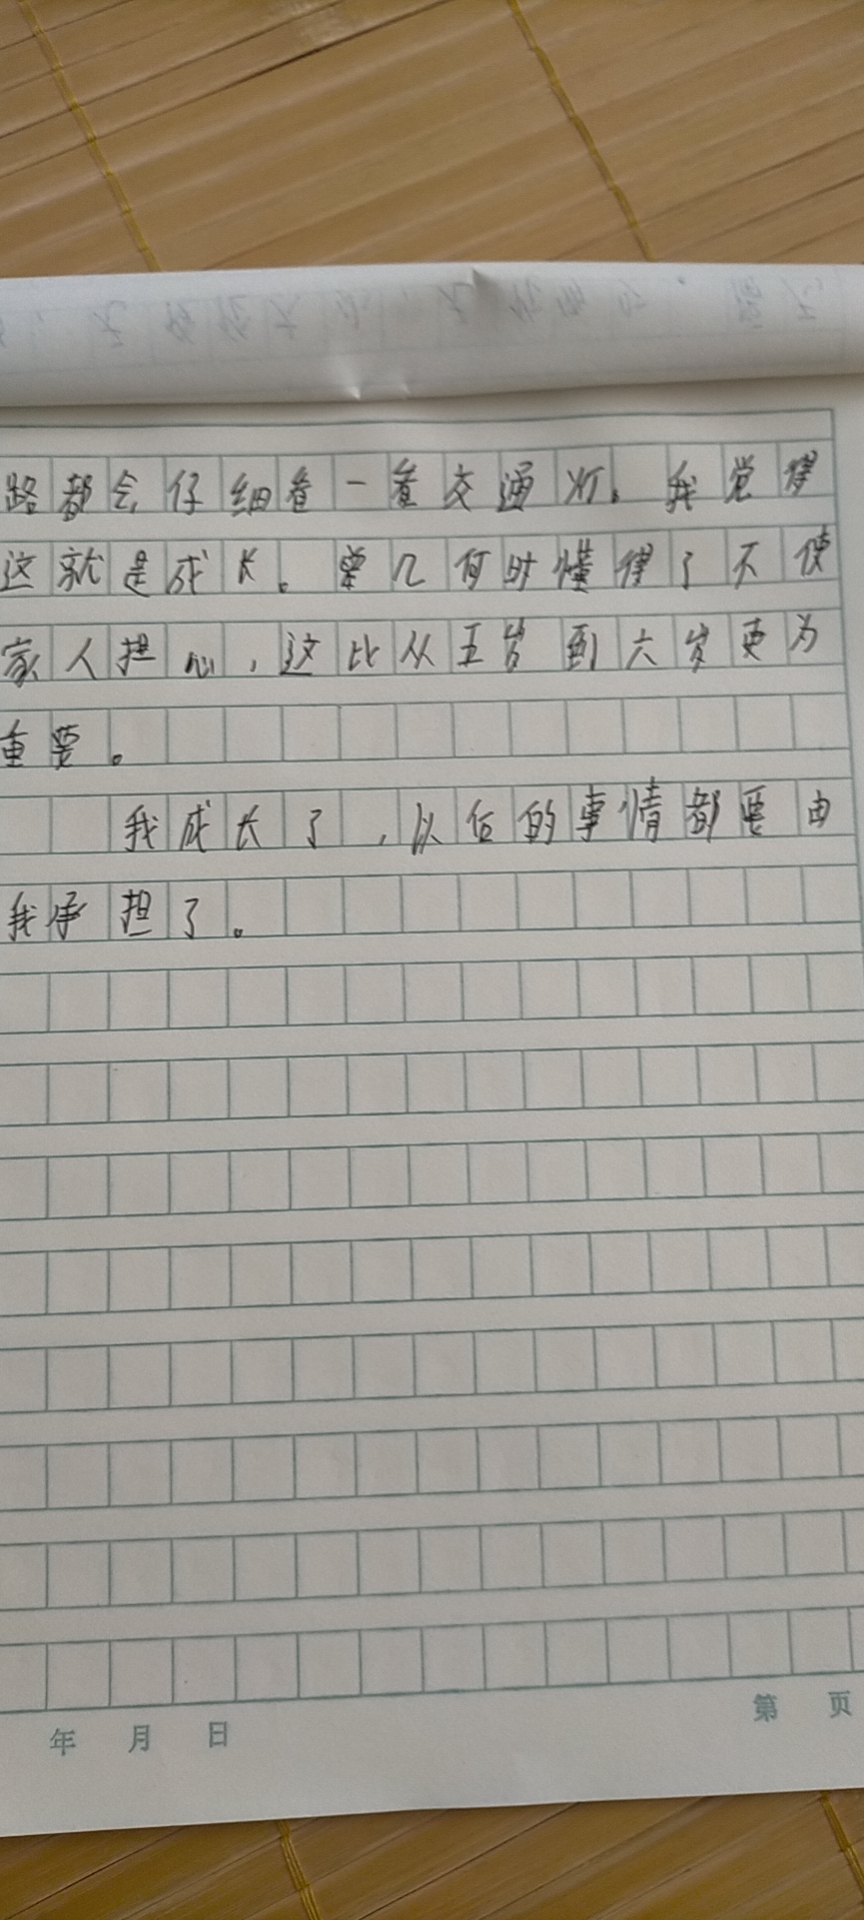 路都会仔细看一看交通灯。我觉得
这就是成长。曾几何时懂得了不使
家人担心，这比从五岁到六岁更为
重要。
我成长了，以后的事情都要由
我承担了。
年 月 日
第 页